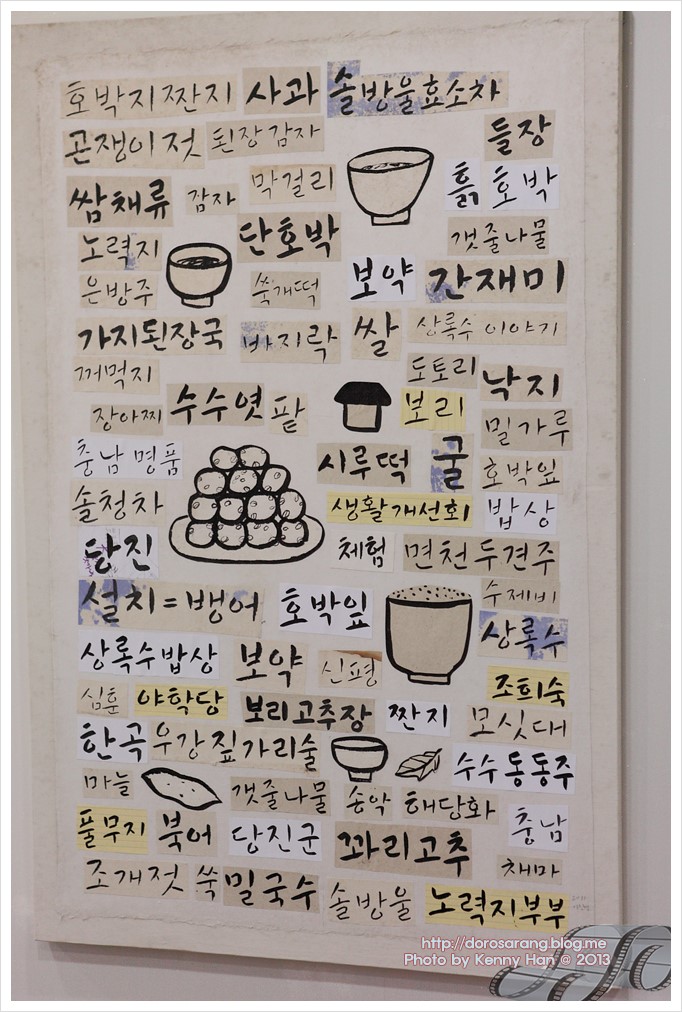 호박지짠지 사과 솔방울효소차
곤쟁이젓 된장감자 들장
쌈채류 감자 막걸리 흙 호박
노력지 단호박 갯줄나물
은방주 쑥개떡 보약 간재미
가지된장국 바지락 쌀 상록수 이야기
꺼먹지 도토리 낙지
장아찌 수수엿 팥 보리 밀가루
충남 명품 시루떡 굴 호박잎
솔청차 생활개선회 밥상
당진 체험 면천두견주
설치=뱅어 호박잎 수제비
상록수밥상 보약 신평 상록수
심훈 야학당 보리고추장 짠지 조희숙
한곡우강짚가리술 모싯대
마늘 갯줄나물 송악 해당화 수수동동주
풀무지 북어 당진군 꽈리고추 충남
조개젓 쑥밀국수 솔방울 노력지부부 채마
http://dorosarang.blog.me
Photo by Kenny Han @ 2013